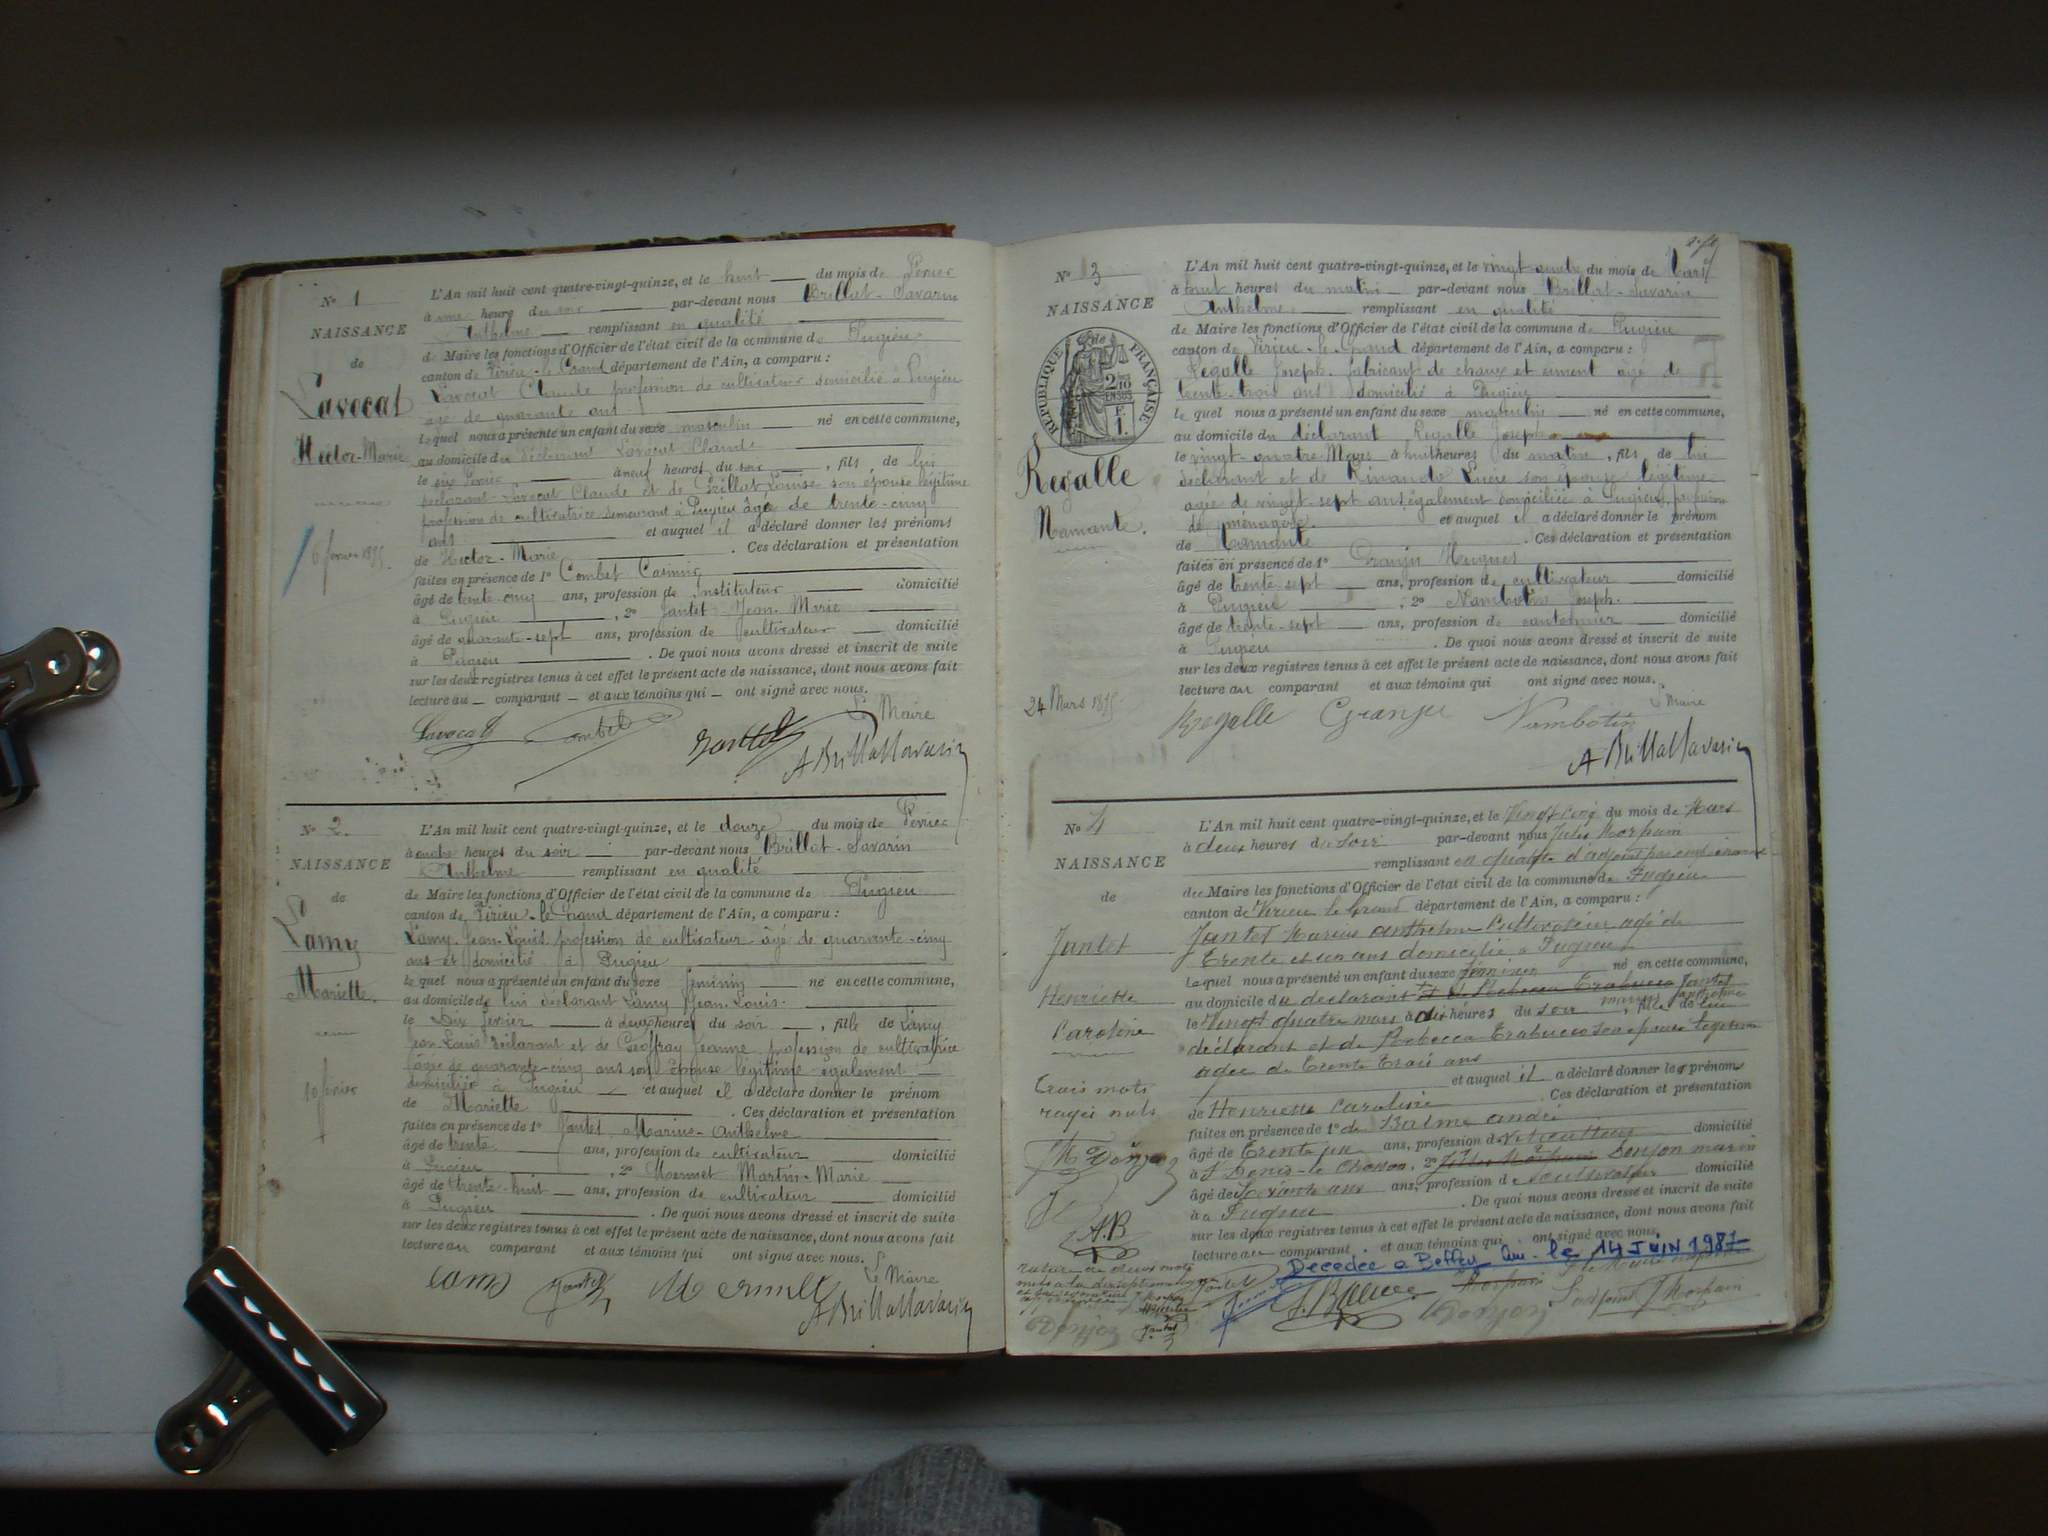 N° 1
NAISSANCE
de
Lavocat
Hector-Marie
6 fevrier 1895
L'An mil huit cent quatre-vingt-quinze, et le huit du mois de Fevrier
à une heure du soir par-devant nous Brillat-Savarin
Anthelme remplissant en qualité
de Maire les fonctions d'Officier de l'état civil de la commune de Pugieu
canton de Virieu-le-Grand département de l'Ain, a comparu :
Lavocat Claude profession de cultivateur domicilié à Pugieu
âgé de quarante ans
lequel nous a présenté un enfant du sexe masculin né en cette commune,
au domicile du déclarant Lavocat Claude
le six Fevrier à neuf heures du soir, fils de lui
déclarant Lavocat Claude et de Grillat Louise son épouse légitime
profession de cultivatrice demeurant à Pugieu âgé de trente-cinq
ans et auquel il a déclaré donner les prénoms
de Hector-Marie. Ces déclaration et présentation
faites en présence de 1° Combet Casimir
âgé de trente cinq ans, profession de Instituteur domicilié
à Pugieu, 2° Jantet Jean-Marie
âgé de quarante-sept ans, profession de cultivateur domicilié
à Pugieu. De quoi nous avons dressé et inscrit de suite
sur les deux registres tenus à cet effet le présent acte de naissance, dont nous avons fait
lecture au comparant et aux témoins qui ont signé avec nous.
Le Maire
Lavocat Combet Jantet A Brillat Savarin
N° 2
NAISSANCE
de
Lamy
Mariette
10 fevrier
L'An mil huit cent quatre-vingt-quinze, et le douze du mois de Fevrier
à quatre heures du soir par-devant nous Brillat-Savarin
Anthelme remplissant en qualité
de Maire les fonctions d'Officier de l'état civil de la commune de Pugieu
canton de Virieu-le-Grand département de l'Ain, a comparu :
Lamy Jean-Louis profession de cultivateur âgé de quarante-cinq
ans et domicilié à Pugieu
lequel nous a présenté un enfant du sexe feminin né en cette commune,
au domicile de lui déclarant Lamy Jean-Louis
le Dix fevrier à deux heures du soir, fille de Lamy
Jean-Louis déclarant et de Geoffray Jeanne profession de cultivatrice
âgée de quarante-cinq ans son épouse légitime également
domiciliée à Pugieu et auquel il a déclaré donner le prénom
de Mariette. Ces déclaration et présentation
faites en présence de 1° Jantet Marius-Anthelme
âgé de trente ans, profession de cultivateur domicilié
à Pugieu, 2° Mermet Martin-Marie
âgé de trente-huit ans, profession de cultivateur domicilié
à Pugieu. De quoi nous avons dressé et inscrit de suite
sur les deux registres tenus à cet effet le présent acte de naissance, dont nous avons fait
lecture au comparant et aux témoins qui ont signé avec nous.
Le Maire
Lamy Jantet Mermet A Brillat Savarin
N° 3
NAISSANCE
de
RÉPUBLIQUE FRANÇAISE
2/10 EN SUS
F. 1.
Regalle
Namante
24 Mars 1895
L'An mil huit cent quatre-vingt-quinze, et le vingt-quatre du mois de Mars
à huit heures du matin par-devant nous Brillat-Savarin
Anthelme remplissant en qualité
de Maire les fonctions d'Officier de l'état civil de la commune de Pugieu
canton de Virieu-le-Grand département de l'Ain, a comparu :
Regalle Joseph fabricant de chaux et ciment âgé de
trente-trois ans domicilié à Pugieu
lequel nous a présenté un enfant du sexe masculin né en cette commune,
au domicile du déclarant Regalle Joseph
le vingt-quatre Mars à huit heures du matin, fils de lui
déclarant et de Lucie son épouse légitime
agée de vingt-sept ans également domiciliée à Pugieu, profession
de ménagère et auquel il a déclaré donner le prénom
de Namante. Ces déclaration et présentation
faites en présence de 1° Granju Hugues
âgé de trente-sept ans, profession de cultivateur domicilié
à Pugieu, 2° Nambotin Joseph
âgé de trente-sept ans, profession de cantonnier domicilié
à Pugieu. De quoi nous avons dressé et inscrit de suite
sur les deux registres tenus à cet effet le présent acte de naissance, dont nous avons fait
lecture au comparant et aux témoins qui ont signé avec nous.
Le Maire
Regalle Granju Nambotin
A Brillat Savarin
N° 4
NAISSANCE
de
Jantet
Henriette
Caroline
Trois mots
rayés nuls
A.B
L'An mil huit cent quatre-vingt-quinze, et le Vingt cinq du mois de Mars
à deux heures du soir par-devant nous Jules Morpain
remplissant en qualité d'adjoint
du Maire les fonctions d'Officier de l'état civil de la commune de Pugieu
canton de Virieu le Grand département de l'Ain, a comparu :
Jantet Marius Anthelme Cultivateur agé de
Trente et un ans domicilié à Pugieu
lequel nous a présenté un enfant du sexe féminin né en cette commune,
au domicile du déclarant et de Rebecca Trabucco Jantet
marius anthelme
le Vingt quatre mars à dix heures du soir, fille de lui
déclarant et de Rebecca Trabucco son épouse légitime
agée de Trente Trois ans
et auquel il a déclaré donner les prénoms
de Henriette Caroline. Ces déclaration et présentation
faites en présence de 1° de Balme andré
âgé de Trente ans, profession de domicilié
à St Denis-le Chosson, 2° Jules Morpain Donjon marin
âgé de Soixante ans ans, profession de cultivateur domicilié
à Pugieu. De quoi nous avons dressé et inscrit de suite
sur les deux registres tenus à cet effet le présent acte de naissance, dont nous avons fait
lecture au comparant et aux témoins qui ont signé avec nous.
Décédée à Belley Ain. le 14 JUIN 1987
Morpain
L'adjoint J Morpain